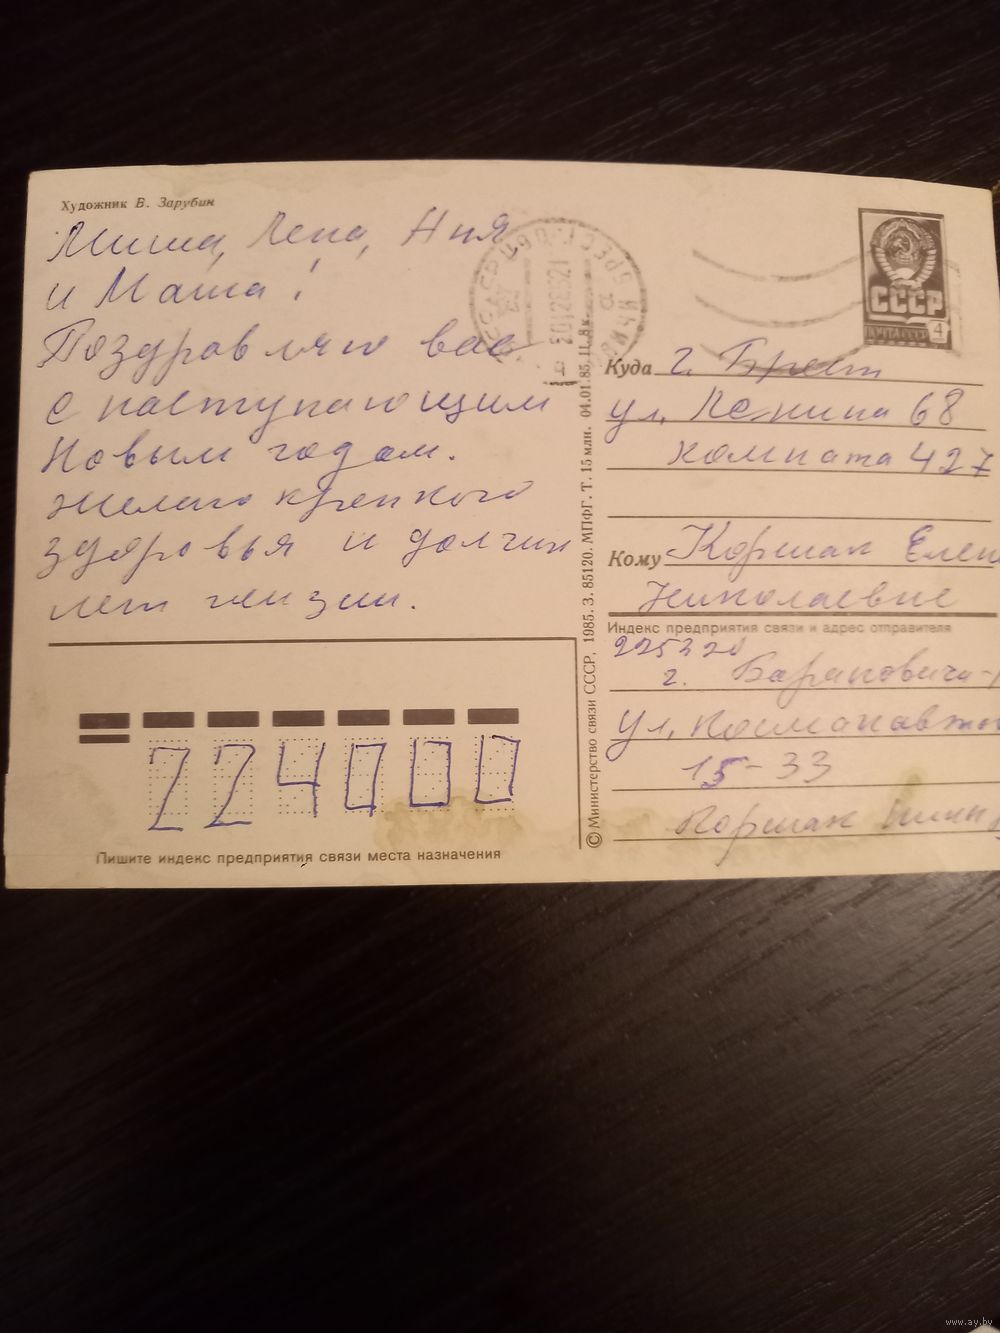 Художник В. Зарубин
Миша, Лена, Аня
и Маша!
Поздравляю вас
с наступающим
Новым годом.
Желаю крепкого
здоровья и долгих
лет жизни.
СССР
4
Куда г. Брест
ул. Ленина 68
комната 427
Кому Коршак Елен
Николаевне
Индекс предприятия связи и адрес отправителя
225320
г. Барановичи-
ул.
15-33
Коршак
© Министерство связи СССР, 1985. З. 85120. МПФГ. Т. 15 млн. 04.01.85. Ц. 8 к.
224000
Пишите индекс предприятия связи места назначения
www.ay.by